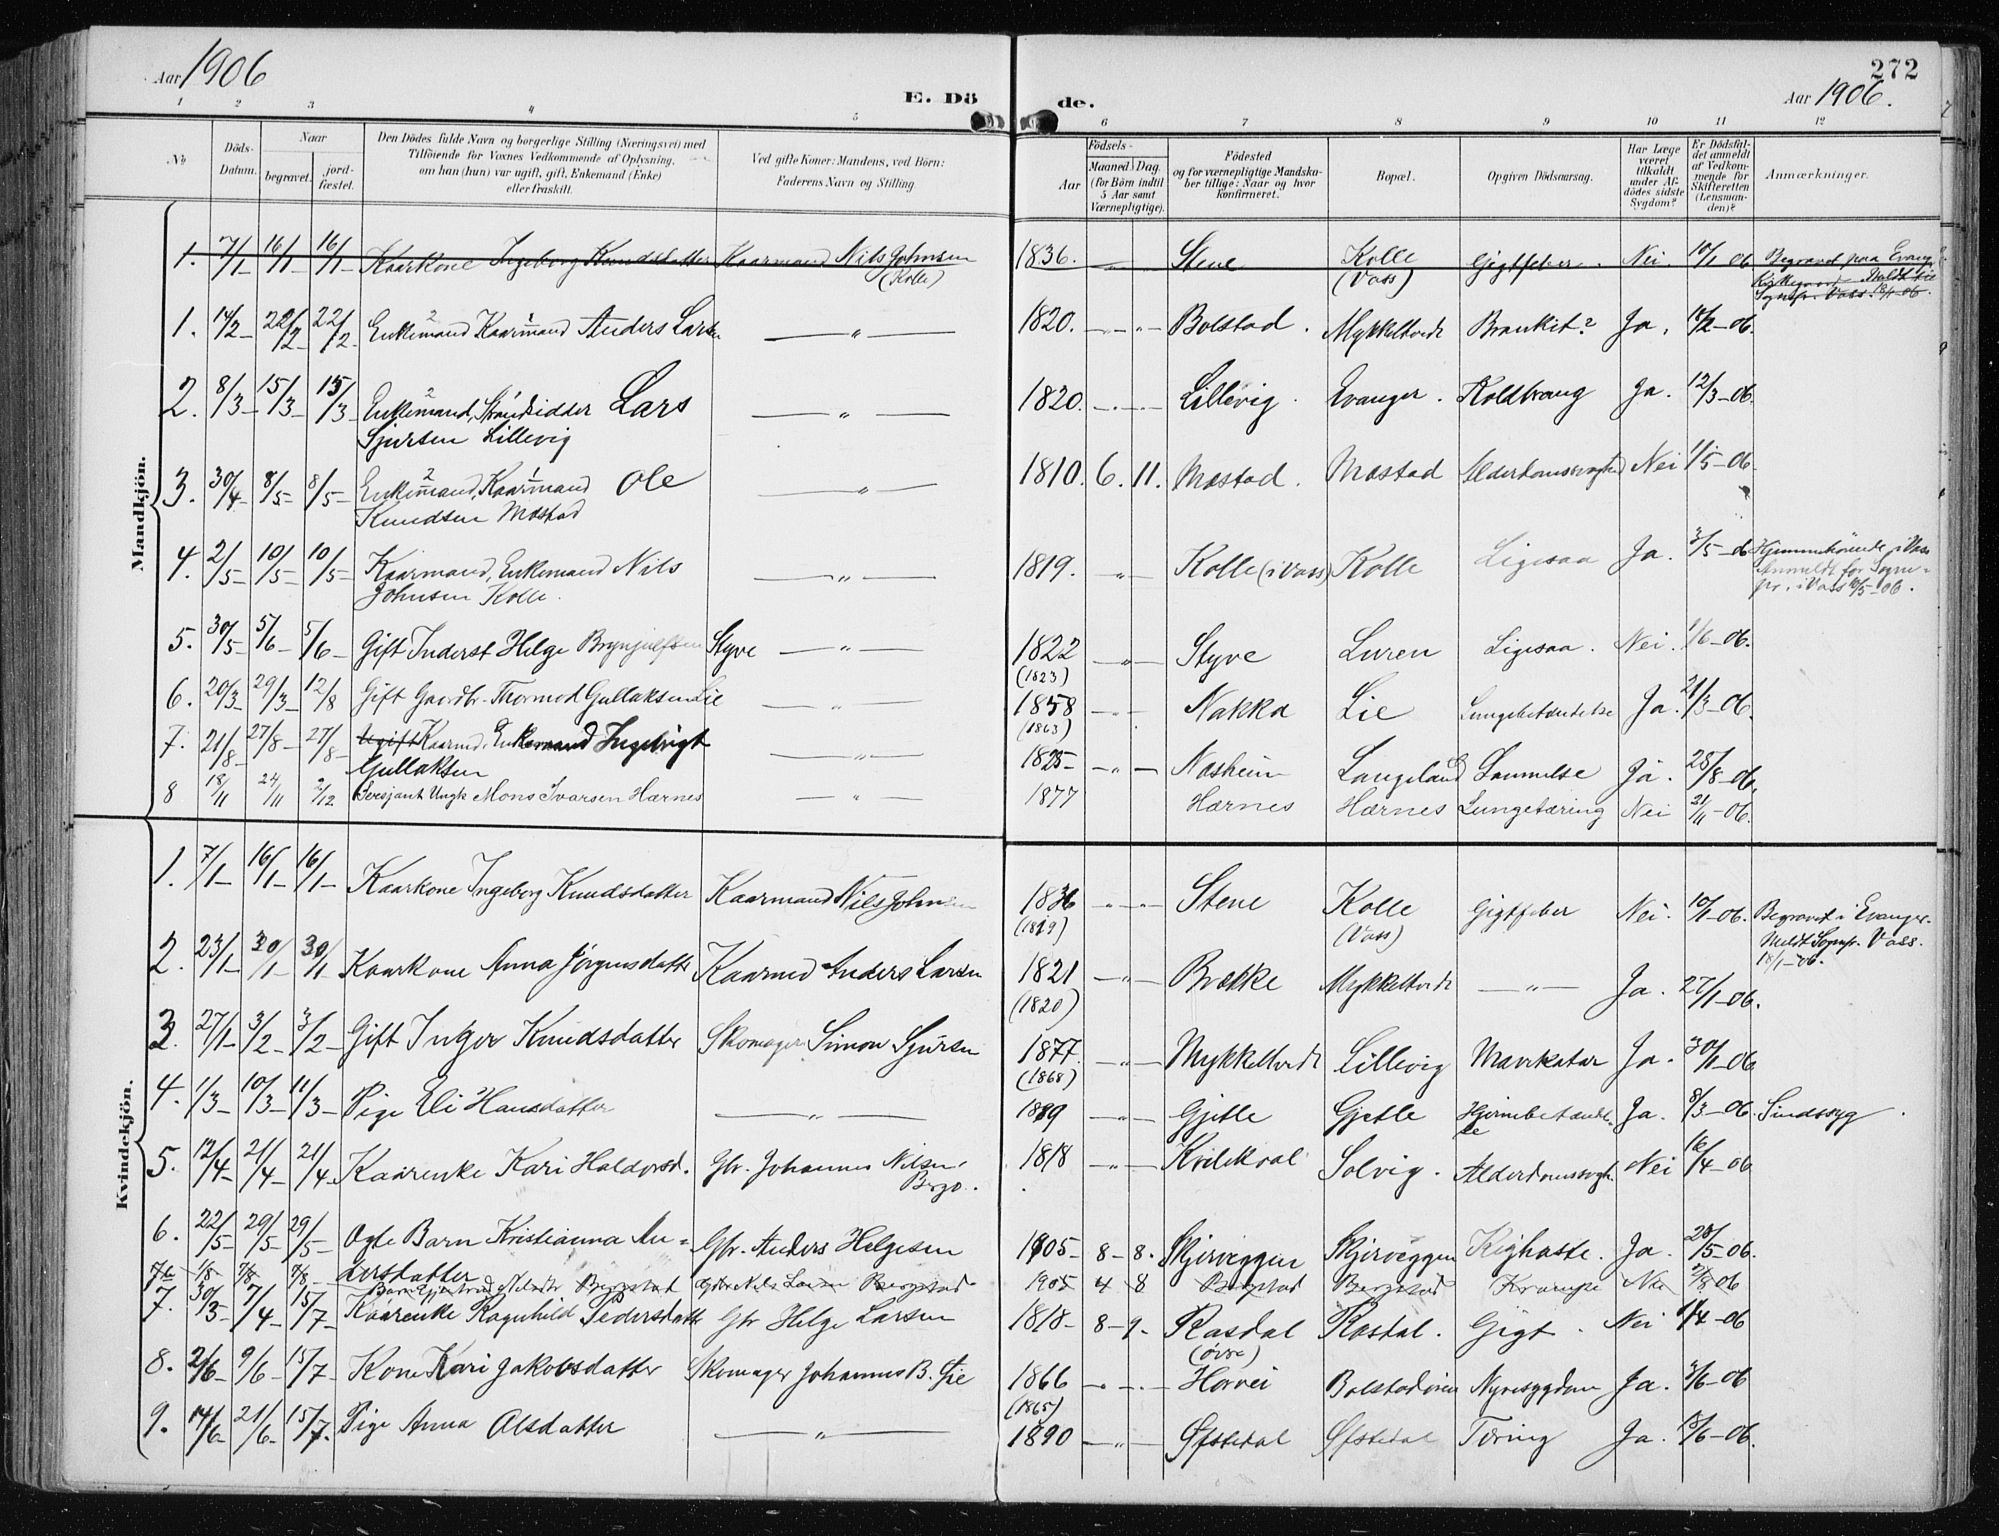 Aar 1906
E. Dö
de.
272
Aar 1906.
1 2 3 4 5 6 7 8 9 10 11 12
No
Döds-Datum.
Naar
begravet.
jordfæstet.
Den Dödes fulde Navn og borgerlige Stilling (Næringsvei) med
Tilföiende for Voxnes Vedkommende af Oplysning,
om han (hun) var ugift, gift, Enkemand (Enke)
eller fraskilt.
Ved gifte Koner: Mandens, ved Börn:
Faderens Navn og Stilling
Födsels-
Aar
Maaned. Dag.
(for Börn indtil
5 Aar samt
Værnepligtige).
Födested
og for værnepligtige Mandska-
ber tillige: Naar og hvor
konfirmeret.
Bopæl.
Opgiven Dödsaarsag.
Har Læge
været
tilkaldt
under Af-
dödes sidste
Sygdom?
Er Dödsfal-
det anmeldt
af Vedkom-
mende for
Skifteretten
(Lensman-
den)?
Anmærkninger.
Mandkjön.
1. 7/1 16/1 16/1 Kaarkone Ingeborg Knudsdatter Kaarmand Nils Johnsen (Kolle) 1836. — „ — Stene Kolle (Vass) Gigtfeber. Nei 10/1 06 Begravd paa Evang.
Sognepr. Vass. 18/1-06.
1. 14/2 22/2 22/2 Enkemand Kaarmand Anders Larsen — „ — 1820. — „ — Bolstad. Mykkeltvedt Bronkit? Ja. 14/2-06.
2. 8/3 15/3 15/3 Enkemand, Strandsidder Lars
Sjursen Lillevig — „ — 1820. — Lillevig. Evanger. Koldbrang Ja. 12/3-06.
3. 30/4 8/5 8/5 Enkemand, Kaarmand Ole
Knudsen Mostad — „ — 1810. 6. 11. Mostad. Mostad Alderdomssvaghed Nei 1/5-06.
4. 2/5 10/5 10/5 Kaarmand, Enkemand Nils
Johnsen Kolle. — „ — 1819. — „ — Kolle (i Vass) Kolle Ligesaa Ja. 3/5-06 Hjemmehörende i Vass
Anmeldt for Sogne-
pr. i Vass 10/5-06.
5. 30/5 5/6 5/6 Gift Inderst Helge Brynjulfsen Styve — „ — 1822 (1823) — „ — Styve Luren Ligesaa. Nei. 1/6-06.
6. 20/3 29/3 12/8 Gift Gaardbr. Thormod Gullaksen Lie — „ — 1858 (1863) — „ — Nakka Lie Lungebetændelse Ja. 21/3-06.
7. 21/8 27/8 27/8 Ugift Kaarmd. Enkemand Ingebrigt
Gullaksen — „ — 1825 — „ — Nosheim Langeland Lammelse Ja. 25/8-06.
8 18/11 24/11 2/12 Sersjant Ungk Mons Ivarsen Hærnes — „ — 1877 Hærnes Hærnes Lungetæring Nei 21/11-06.
Kvindekjön.
1. 7/1 16/1 16/1 Kaarkone Ingeborg Knudsdatter Kaarmand Nils Johnsen 1836 (1819) — „ — Stene Kolle (Vass) Gigtfeber Nei. 10/1-06. Begravet i Evanger.
Meldt Sognepr. Vass.
18/1-06.
2. 23/1 30/1 30/1 Kaarkone Anna Jörgensdatter Kaarmd Anders Larsen 1821 (1820) — „ — Brække Mykkeltvedt — „ — Ja. 27/1-06.
3. 27/1 3/2 3/2 Gift Inger Knudsdatter Skomager Simon Sjursen 1877. (1868) — „ — Mykkeltvedt Lillevig Mavekatar Ja. 30/1-06
4. 1/3 10/3 11/3 Pige Eli Hansdatter — „ — 1889 — „ — Gjetle Gjetle Hjernebetændel-
se Ja. 8/3-06. Sindssyg.
5. 12/4 21/4 21/4 Kaarenke Kari Haldorsd. Gbr. Johannes Nilsen
Bergo. 1818 — „ — Kvilekval Solvig. Alderdomssvagh. Nei 16/4-06
6. 22/5 29/5 29/5 Ogte Barn Kristianna An-
dersdatter Gbr. Anders Helgesen 1905- 8- 8. Skjerveggen Skjerveggen Kighoste. Ja. 28/5-06.
1/8 7/8 7/8 Barn Bergstad Gbr. Nils Larsen Bergstad 1905 4 8 Bergstad Bergstad Krampe Nei 2/8 06
7. 30/3 7/4 15/7 Kaarenke Ragnhild Pedersdatter Gbr Helge Larsen 1818- 8- 9. Rasdal (övre) Rasdal. Gigt. Nei 1/4-06
8. 2/6 9/6 15/7 Kone Kari Jakobsdatter Skomager Johannes B. Gie 1866 (1865) — Horvei Bolstadören Nyresygdom Ja. 3/6-06
9. 14/6 21/6 15/7. Pige Anna Olsdatter — „ — 1890 — „ — Öfstedal Öfstedal Tæring Ja. 18/6-06.